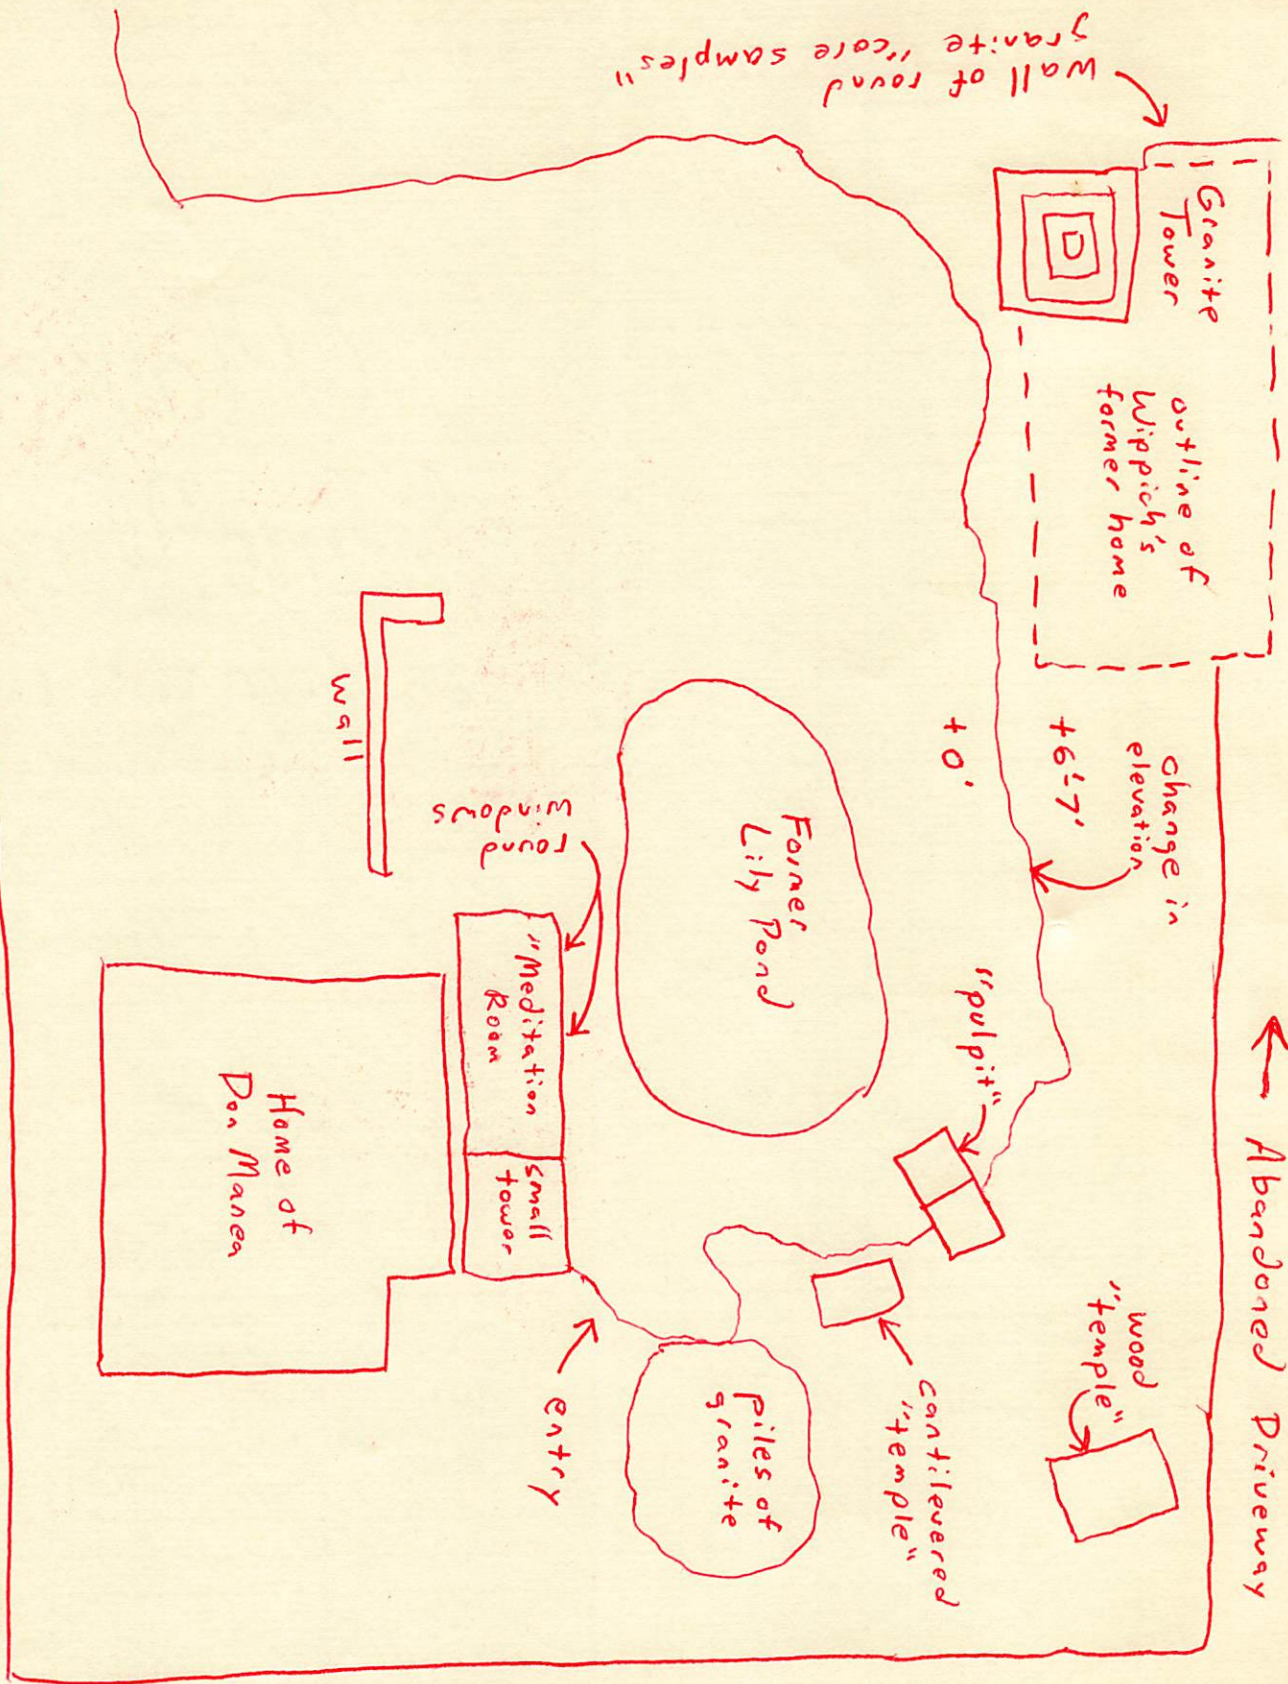 ← Abandoned Driveway
wall of round
granite "core samples"
Granite
Tower
outline of
Wippich's
former home
change in
elevation
+6'-7'
+0'
"pulpit"
wood
"temple"
cantilevered
"temple"
Former
Lily Pond
piles of
granite
entry
round
windows
"Meditation
Room
small
tower
wall
Home of
Don Manea